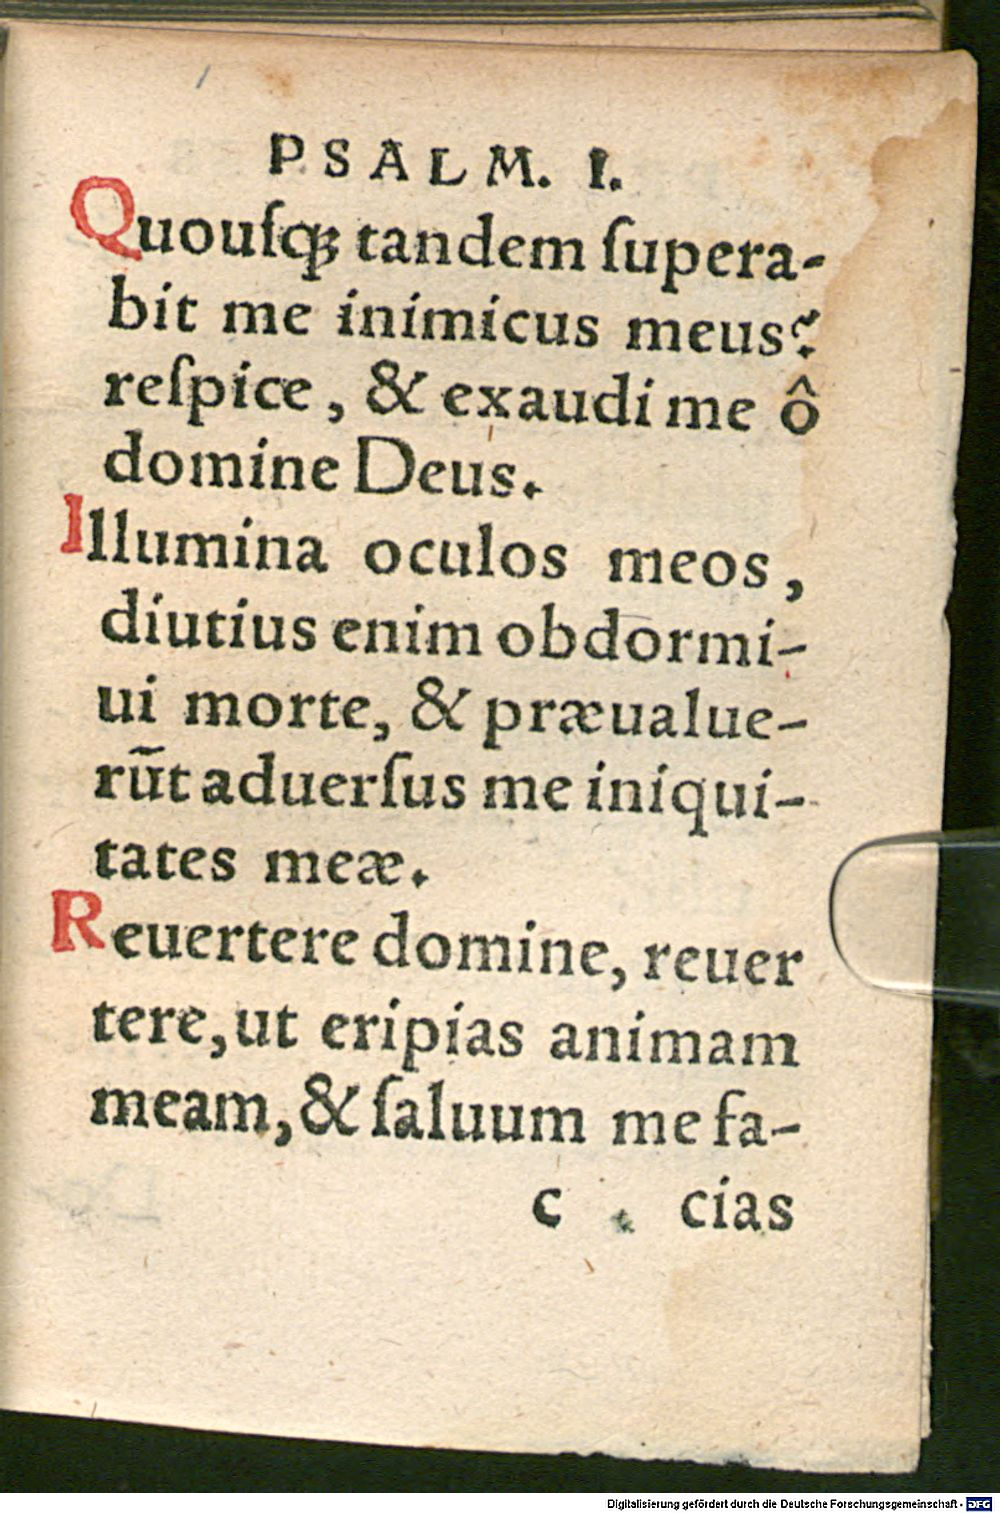 PSALM. I.
Quouſqꝫ tandem ſupera-
bit me inimicus meus?
reſpice, & exaudi me ô
domine Deus.
Illumina oculos meos,
diutius enim obdormi-
ui morte, & præualue-
rũt aduerſus me iniqui-
tates meæ.
Reuertere domine, reuer
tere, ut eripias animam
meam, & ſaluum me fa-
c cias
Digitalisierung gefördert durch die Deutsche Forschungsgemeinschaft - DFG